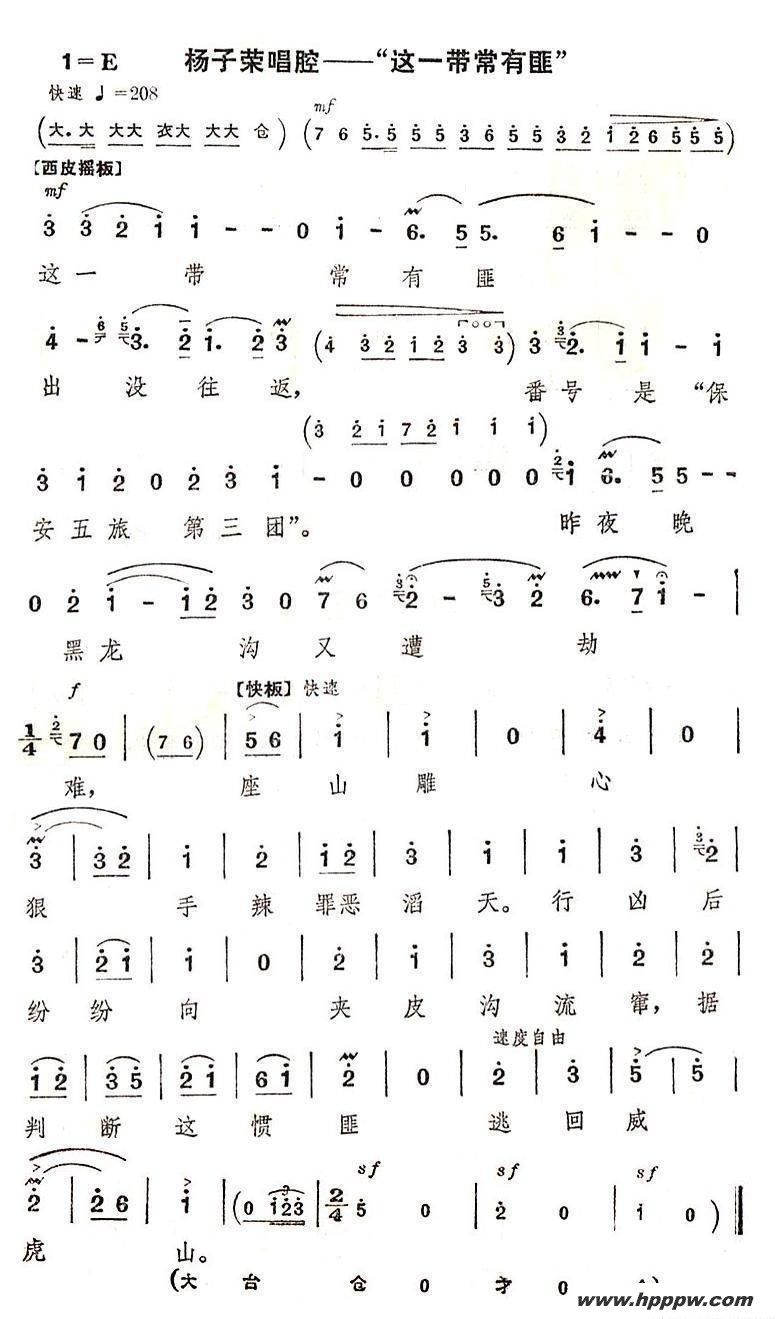 1=E 杨子荣唱腔——“这一带常有匪”
快速 ♩=208
mf
(大.大 大大 衣大 大大 仓) (7 6 5. 5 5 5 3 6 5 5 3 2 1 2 6 5 5 5)
【西皮摇板】
mf
3 3 2 1 1 - - 0 1 - - 6. 5 5. 6 1 - - 0
这一 带 常 有 匪
4 - 6 5 3. 2 1. 2 3 (4 3 2 1 2 3 3) 3 3 2. 1 1 - 1
出 没 往 返, 番 号 是 “保
(3 2 1 7 2 1 1 1)
3 1 2 0 2 3 1 - 0 0 0 0 0 2 1 6. 5 5 - -
安 五 旅 第 三 团”。 昨 夜 晚
0 2 1 - 1 2 3 0 7 6 3 2 - 5 3 2 6. 7 1 - |
黑 龙 沟 又 遭 劫
f 【快板】 快速
1/4 2 7 0 | (7 6) | 5 6 | 1 | 1 | 0 | 4 | 0
难, 座 山 雕 心
3 | 3 2 | 1 | 2 | 1 2 | 3 | 1 | 1 | 3 | 3 2 |
狠 手 辣 罪恶 滔 天。 行 凶 后
3 | 2 1 | 1 | 0 | 2 | 1 | 3 | 1 | 2 | 2 |
纷 纷 向 夹 皮 沟 流 窜, 据
速度自由
1 2 | 3 5 | 2 1 | 6 1 | 2 | 0 | 2 | 3 | 5 | 5 |
判 断 这 惯 匪 逃 回 威
sf sf sf
2 | 2 6 | 1 | (0 1 2 3 | 2/4 5 0 | 2 0 | 1 0)
虎 山。
(大 台 仓 0 才 0
www.hpppw.com